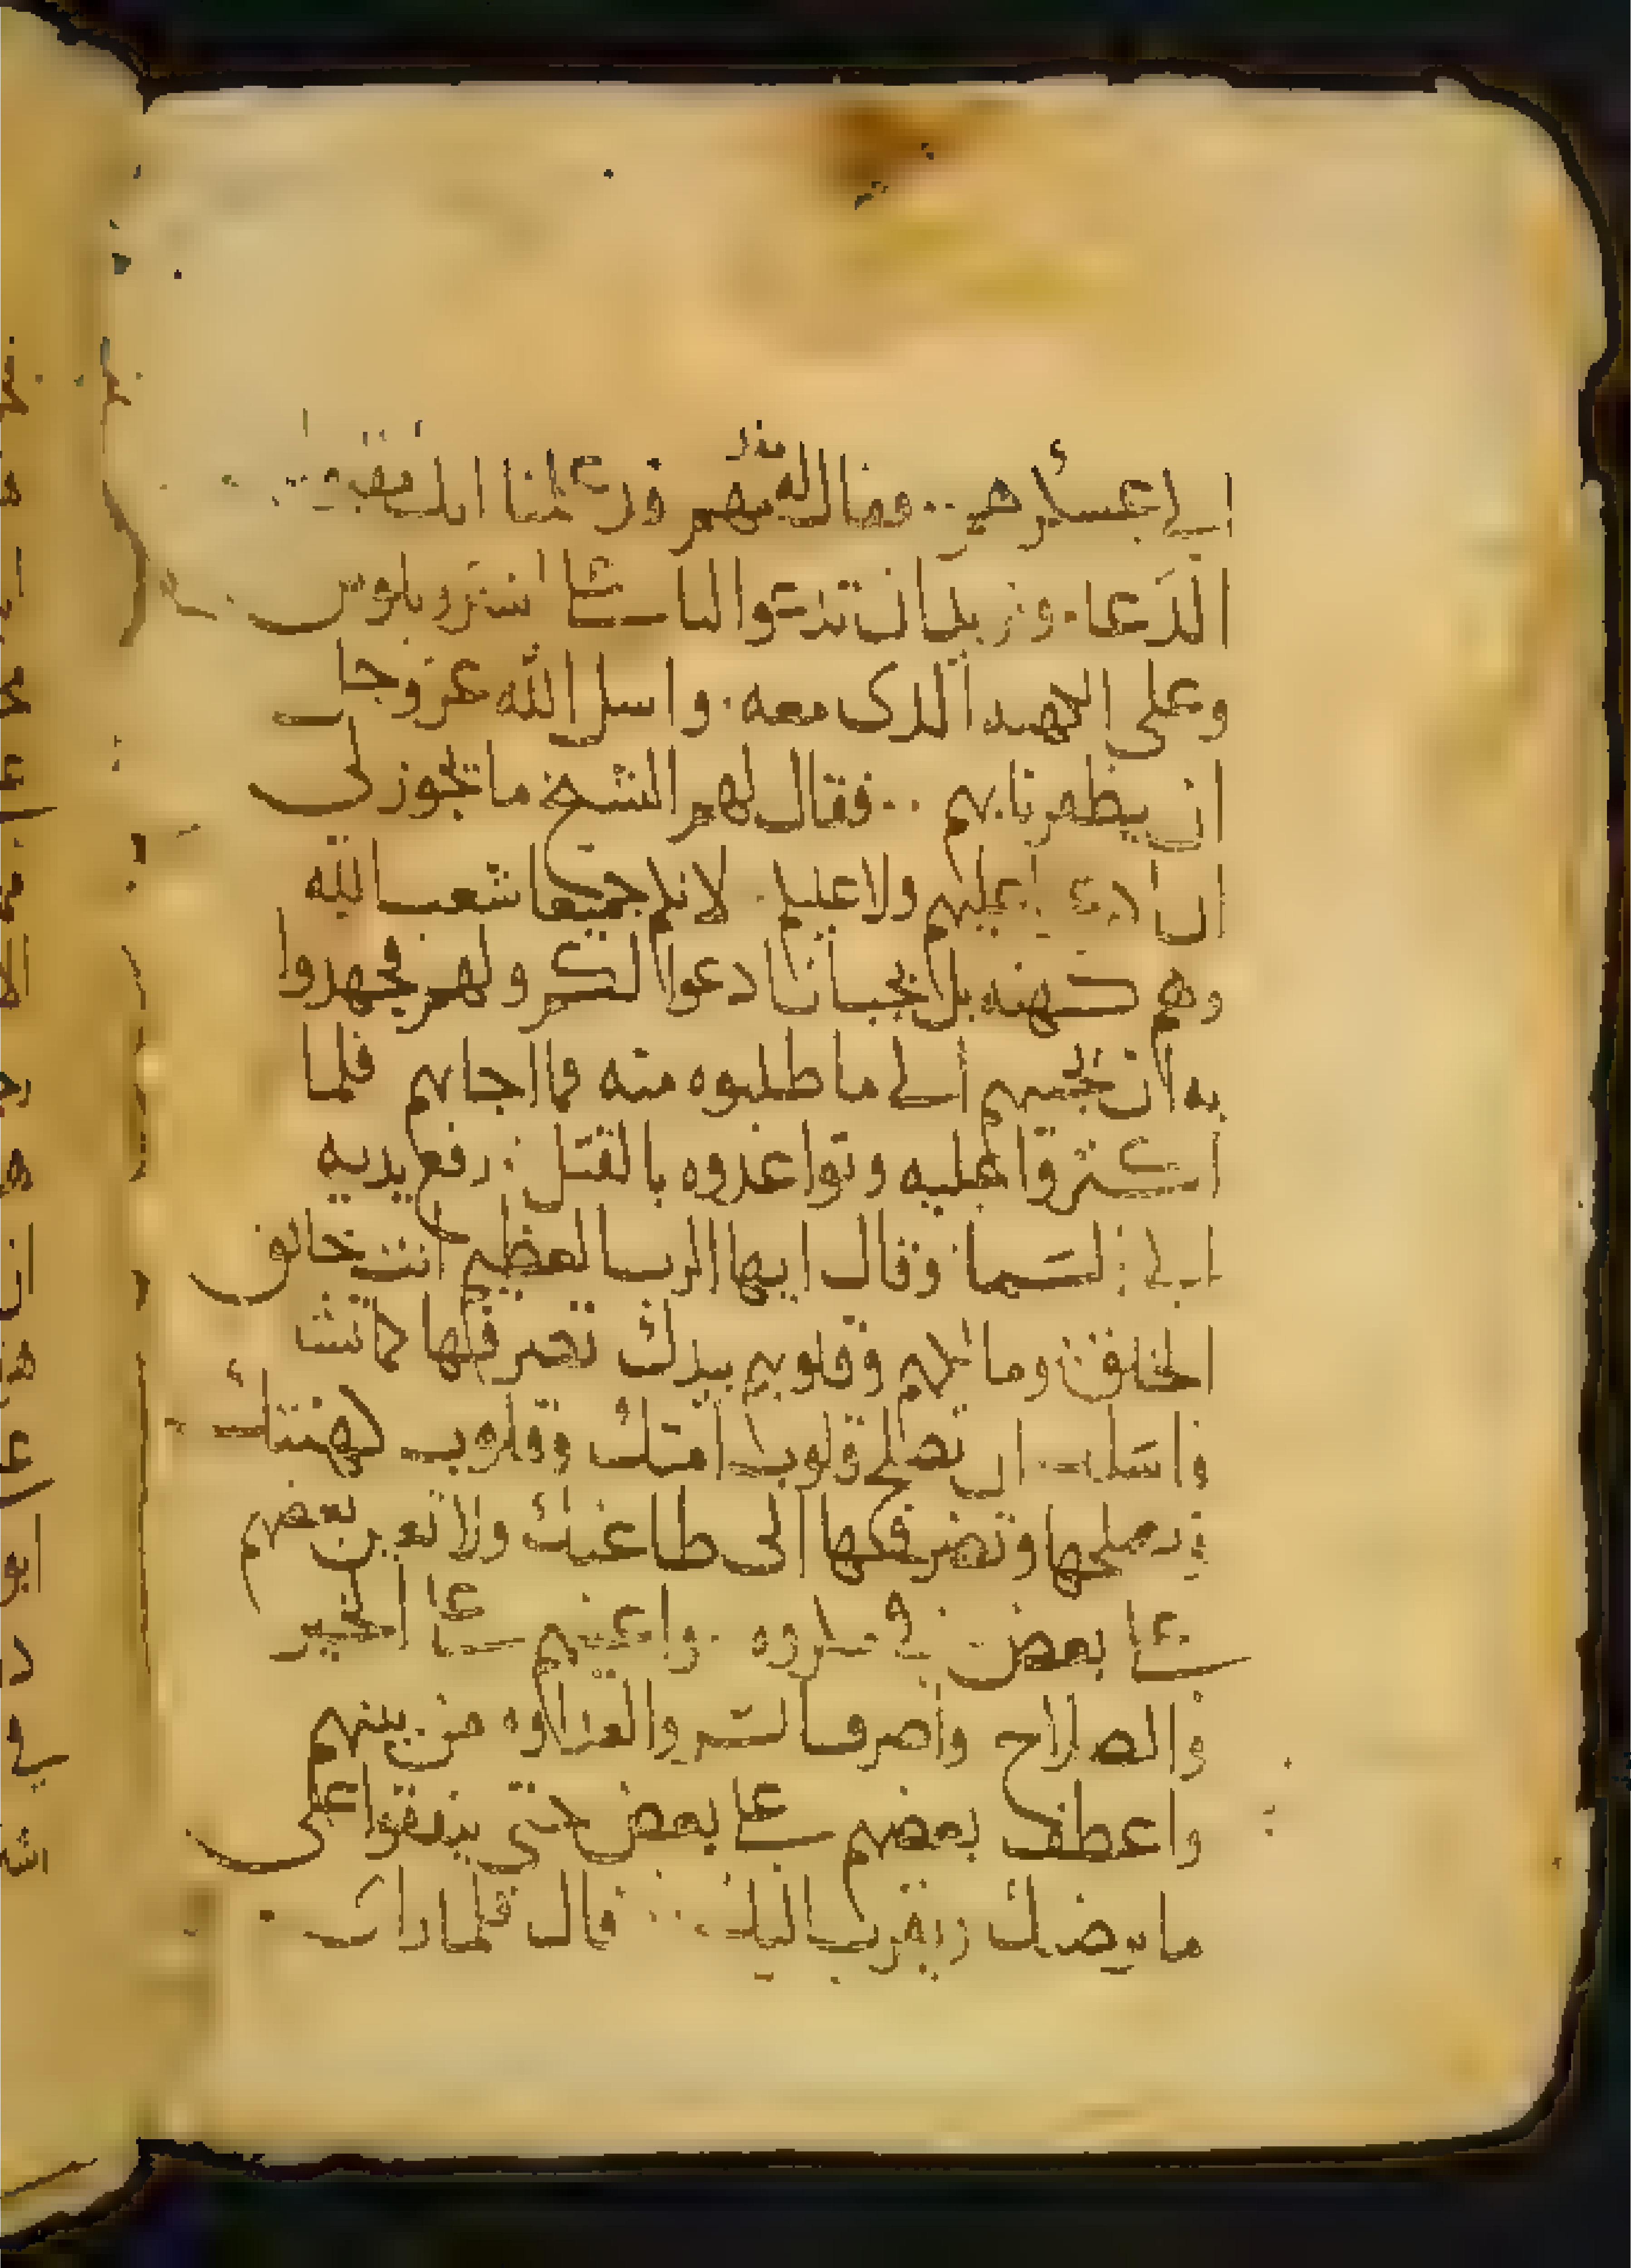 الى عسكرهم .. وقال له بعضهم قد علمنا انك مقبول
الدعا . ونريد ان تدعوا لنا على انسترويلوس
وعلى الكهنه الدى معه . واسل الله عز وجل
ان يظفرنا بهم .. فقال لهم الشيخ ما يجوز لى
ان ادعى عليهم ولا عليكم . لانكم جميعا شعب الله
وهم كهنه بل يجب انا ادعوا لكم ولهم فجهدوا
به ان يجيبهم الى ما طلبوه منه فما اجابهم فلما
اكثروا عليه وتواعدوه بالقتل : رفع يديه
الى السما وقال ايها الرب العظيم انت خالق
الخلق ومالكهم وقلوبهم بيدك تصرفها كما تشا
واسلك ان تصلح قلوب امتك وقلوب كهنتك
وتصلحها وتصرفها الى طاعتك ولا تعين بعضهم
على بعض في مكروه . واعنهم على الخير
والصلاح واصرف الشر والعداوه من بينهم
واعطف بعضهم على بعض حتى يتفقوا على
ما يرضيك ويقرب اليك .. قال فلما رات